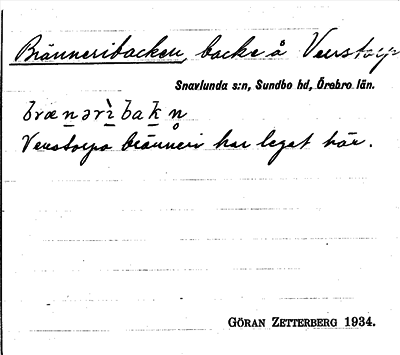 Bränneribacken, backe å Venstorp
Snavlunda s:n, Sundbo hd, Örebro län.
brænərìbakn̥
Venstorps bränneri har legat här.
GÖRAN ZETTERBERG 1934.